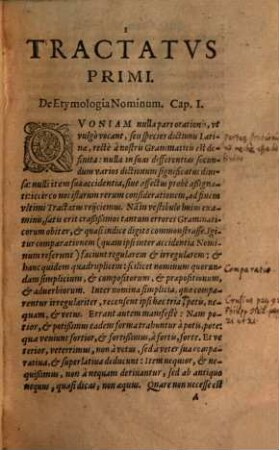 I
TRACTATVS
PRIMI.
De Etymologia Nominum. Cap. I.
QVONIAM nulla pars orationis, vt
vulgò vocant, seu species dictionũ Lati-
næ, rectè à nostris Grammaticis est de-
finita: nulla in suas differentias secun-
dum varias dictionum significatus diui-
sa: nulli item sua accidentia, siue affectus probè assigna-
ti:
ultimi Tractatus reijciemus. Nam
mino, satis erit crassissimos tantum errores Grammati-
corum obiter, & quasi indice digito commonstrasse. Igi-
tur comparationem (quam ipsi inter accidentia Nomi-
num referunt) faciunt regularem & irregularem: &
hanc quidem quadruplicem: scilicet nominum quorun-
dam simplicium, & compositorum, & præpositionum,
& aduerbiorum. Inter nomina simplicia, quæ compa-
rentur irregulariter, recensent ipsi hæc tria, potis, ne-
quam, & vetus. Errant autem manifestè: Nam po-
tior, & potissimus eadem forma trahuntur à potis, pote:
qua veniunt fortior, & fortissimus, à fortis, forte. Et ve-
terior, veterrimus, non à vetus, sed à veter sua compa-
ratiua, & superlatiua deducunt: Item nequior, & ne-
quissimus, non à nequam deriuantur, sed ab antiquo
nequus, quasi dicas, non æquus. Quare non necesse est
A
Comparatio